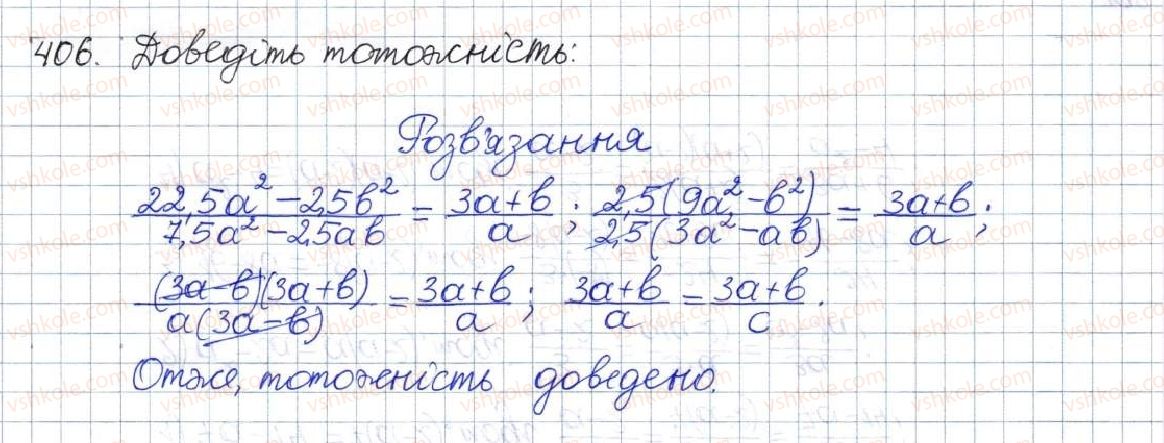 406. Доведіть тотожність:
Розв'язання
(22,5a² - 2,5b²)/(7,5a² - 2,5ab) = (3a+b)/a ; (2,5(9a² - b²))/(2,5(3a² - ab)) = (3a+b)/a ;
((3a-b)(3a+b))/(a(3a-b)) = (3a+b)/a ; (3a+b)/a = (3a+b)/c .
Отже, тотожність доведено.
vshkole.com